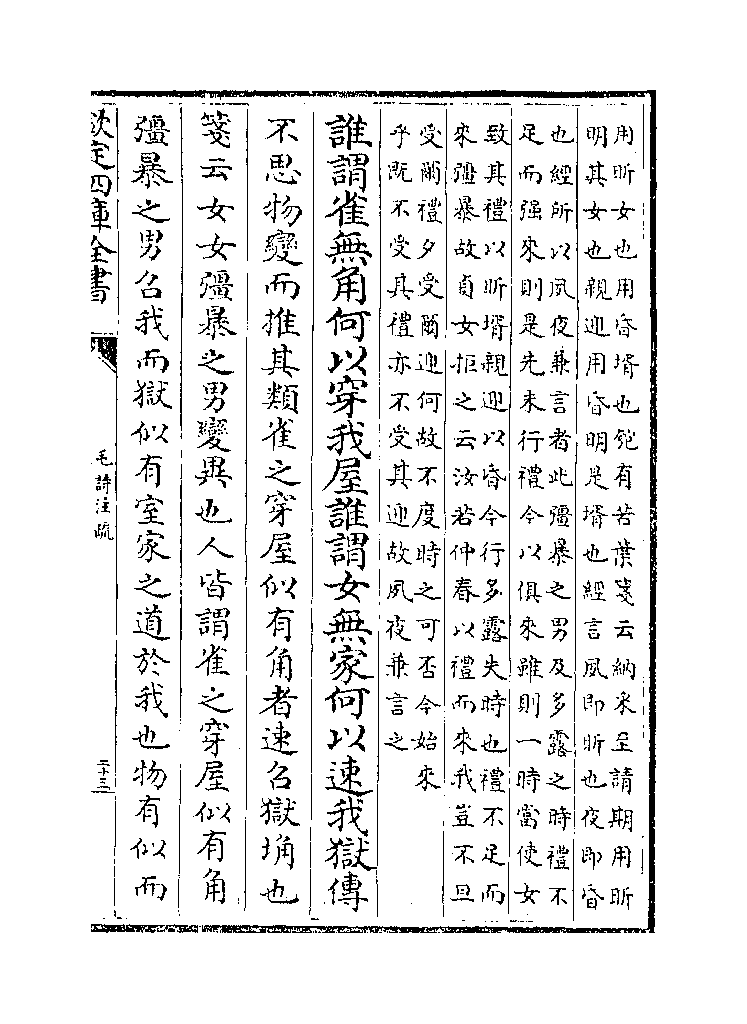 用昕女也用昏壻也匏有苦葉箋云納采至請期用昕
明其女也親迎用昏明是壻也經言夙即昕也夜即昏
也經所以夙夜兼言者此彊暴之男及多露之時禮不
足而强來則是先未行禮今以俱來雖則一時當使女
致其禮以昕壻親迎以昏今行多露失時也禮不足而
來彊暴故貞女拒之云汝若仲春以禮而來我豈不旦
受爾禮夕受爾迎何故不度時之可否今始來
乎既不受其禮亦不受其迎故夙夜兼言之
誰謂雀無角何以穿我屋誰謂女無家何以速我獄傳
不思物變而推其類雀之穿屋似有角者速召獄埆也
箋云女女彊暴之男變異也人皆謂雀之穿屋似有角
彊暴之男召我而獄似有室家之道於我也物有似而
欽定四庫全書
毛詩注疏
二十三